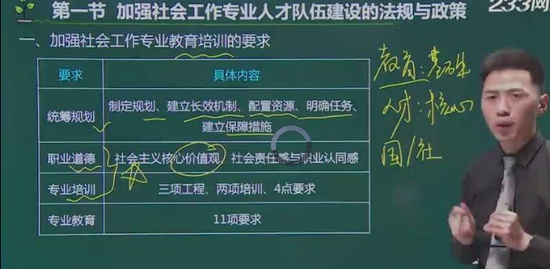 第一节 加强社会工作专业人才队伍建设的法规与政策
233网
一、加强社会工作专业教育培训的要求
要求 具体内容
统筹规划 制定规划、建立长效机制、配置资源、明确任务、
建立保障措施
职业道德 社会主义核心价值观、社会责任感与职业认同感
专业培训 三项工程、两项培训、4点要求
专业教育 11项要求
教育：基础
人才：核心
国/社